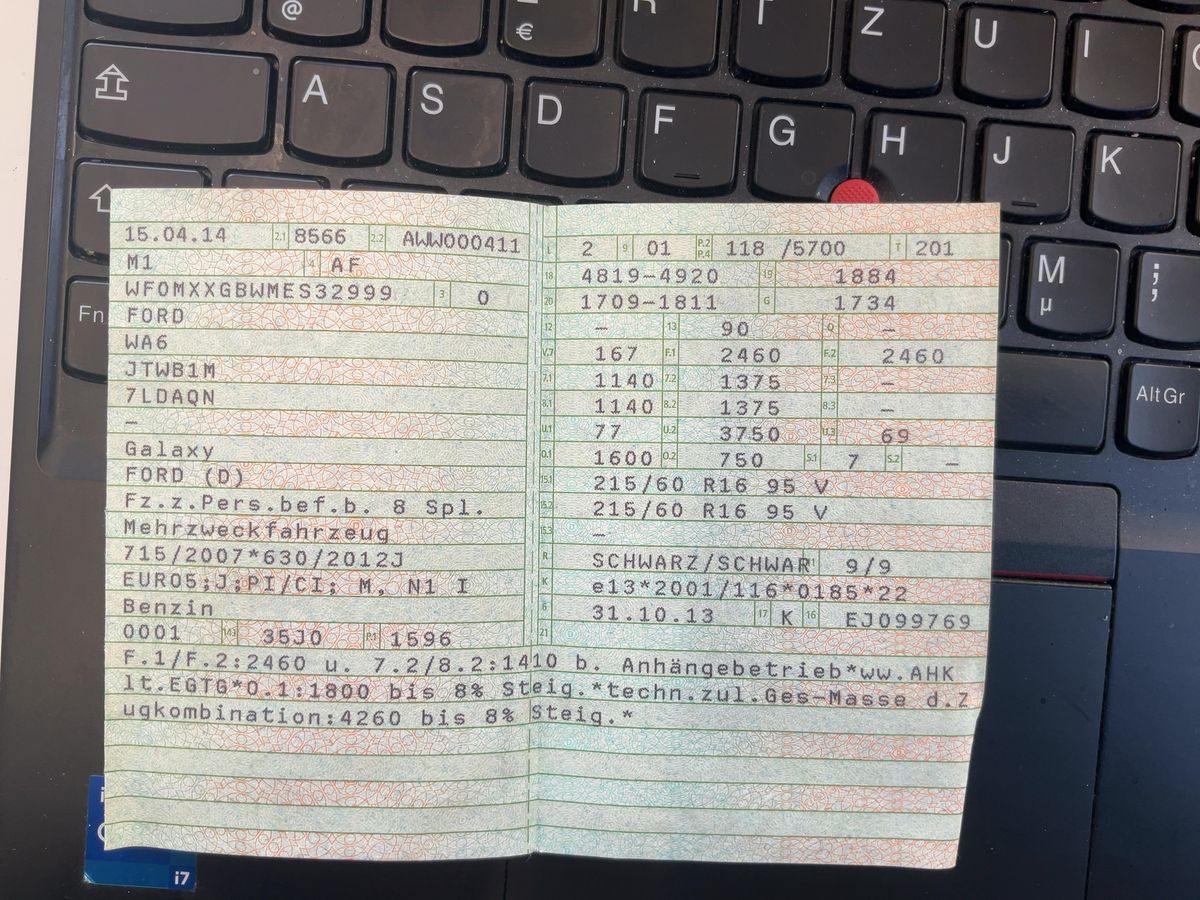 @
€
R
T
Z
U
I
A
S
D
F
G
H
J
K
Fn
M
µ
;
,
Alt Gr
15.04.14 2.1 8566 2.2 AWW000411
M1 4 AF
WF0MXXGBWMES32999 3 0
FORD
WA6
JTWB1M
7LDAQN
–
Galaxy
FORD (D)
Fz.z.Pers.bef.b. 8 Spl.
Mehrzweckfahrzeug
715/2007*630/2012J
EURO5;J;PI/CI; M, N1 I
Benzin
0001 14.1 35J0 P.1 1596
L 2 9 01 P.2 P.4 118 /5700 T 201
18 4819–4920 19 1884
20 1709–1811 G 1734
12 – 13 90 Q –
V.7 167 F.1 2460 F.2 2460
7.1 1140 7.2 1375 7.3 –
8.1 1140 8.2 1375 8.3 –
U.1 77 U.2 3750 U.3 69
O.1 1600 O.2 750 S.1 7 S.2 –
15.1 215/60 R16 95 V
15.2 215/60 R16 95 V
15.3 –
R SCHWARZ/SCHWAR 9/9
K e13*2001/116*0185*22
6 31.10.13 17 K 16 EJ099769
21
F.1/F.2:2460 u. 7.2/8.2:1410 b. Anhängebetrieb*ww.AHK
lt.EGTG*O.1:1800 bis 8% Steig.*techn.zul.Ges-Masse d.Z
ugkombination:4260 bis 8% Steig.*
i7